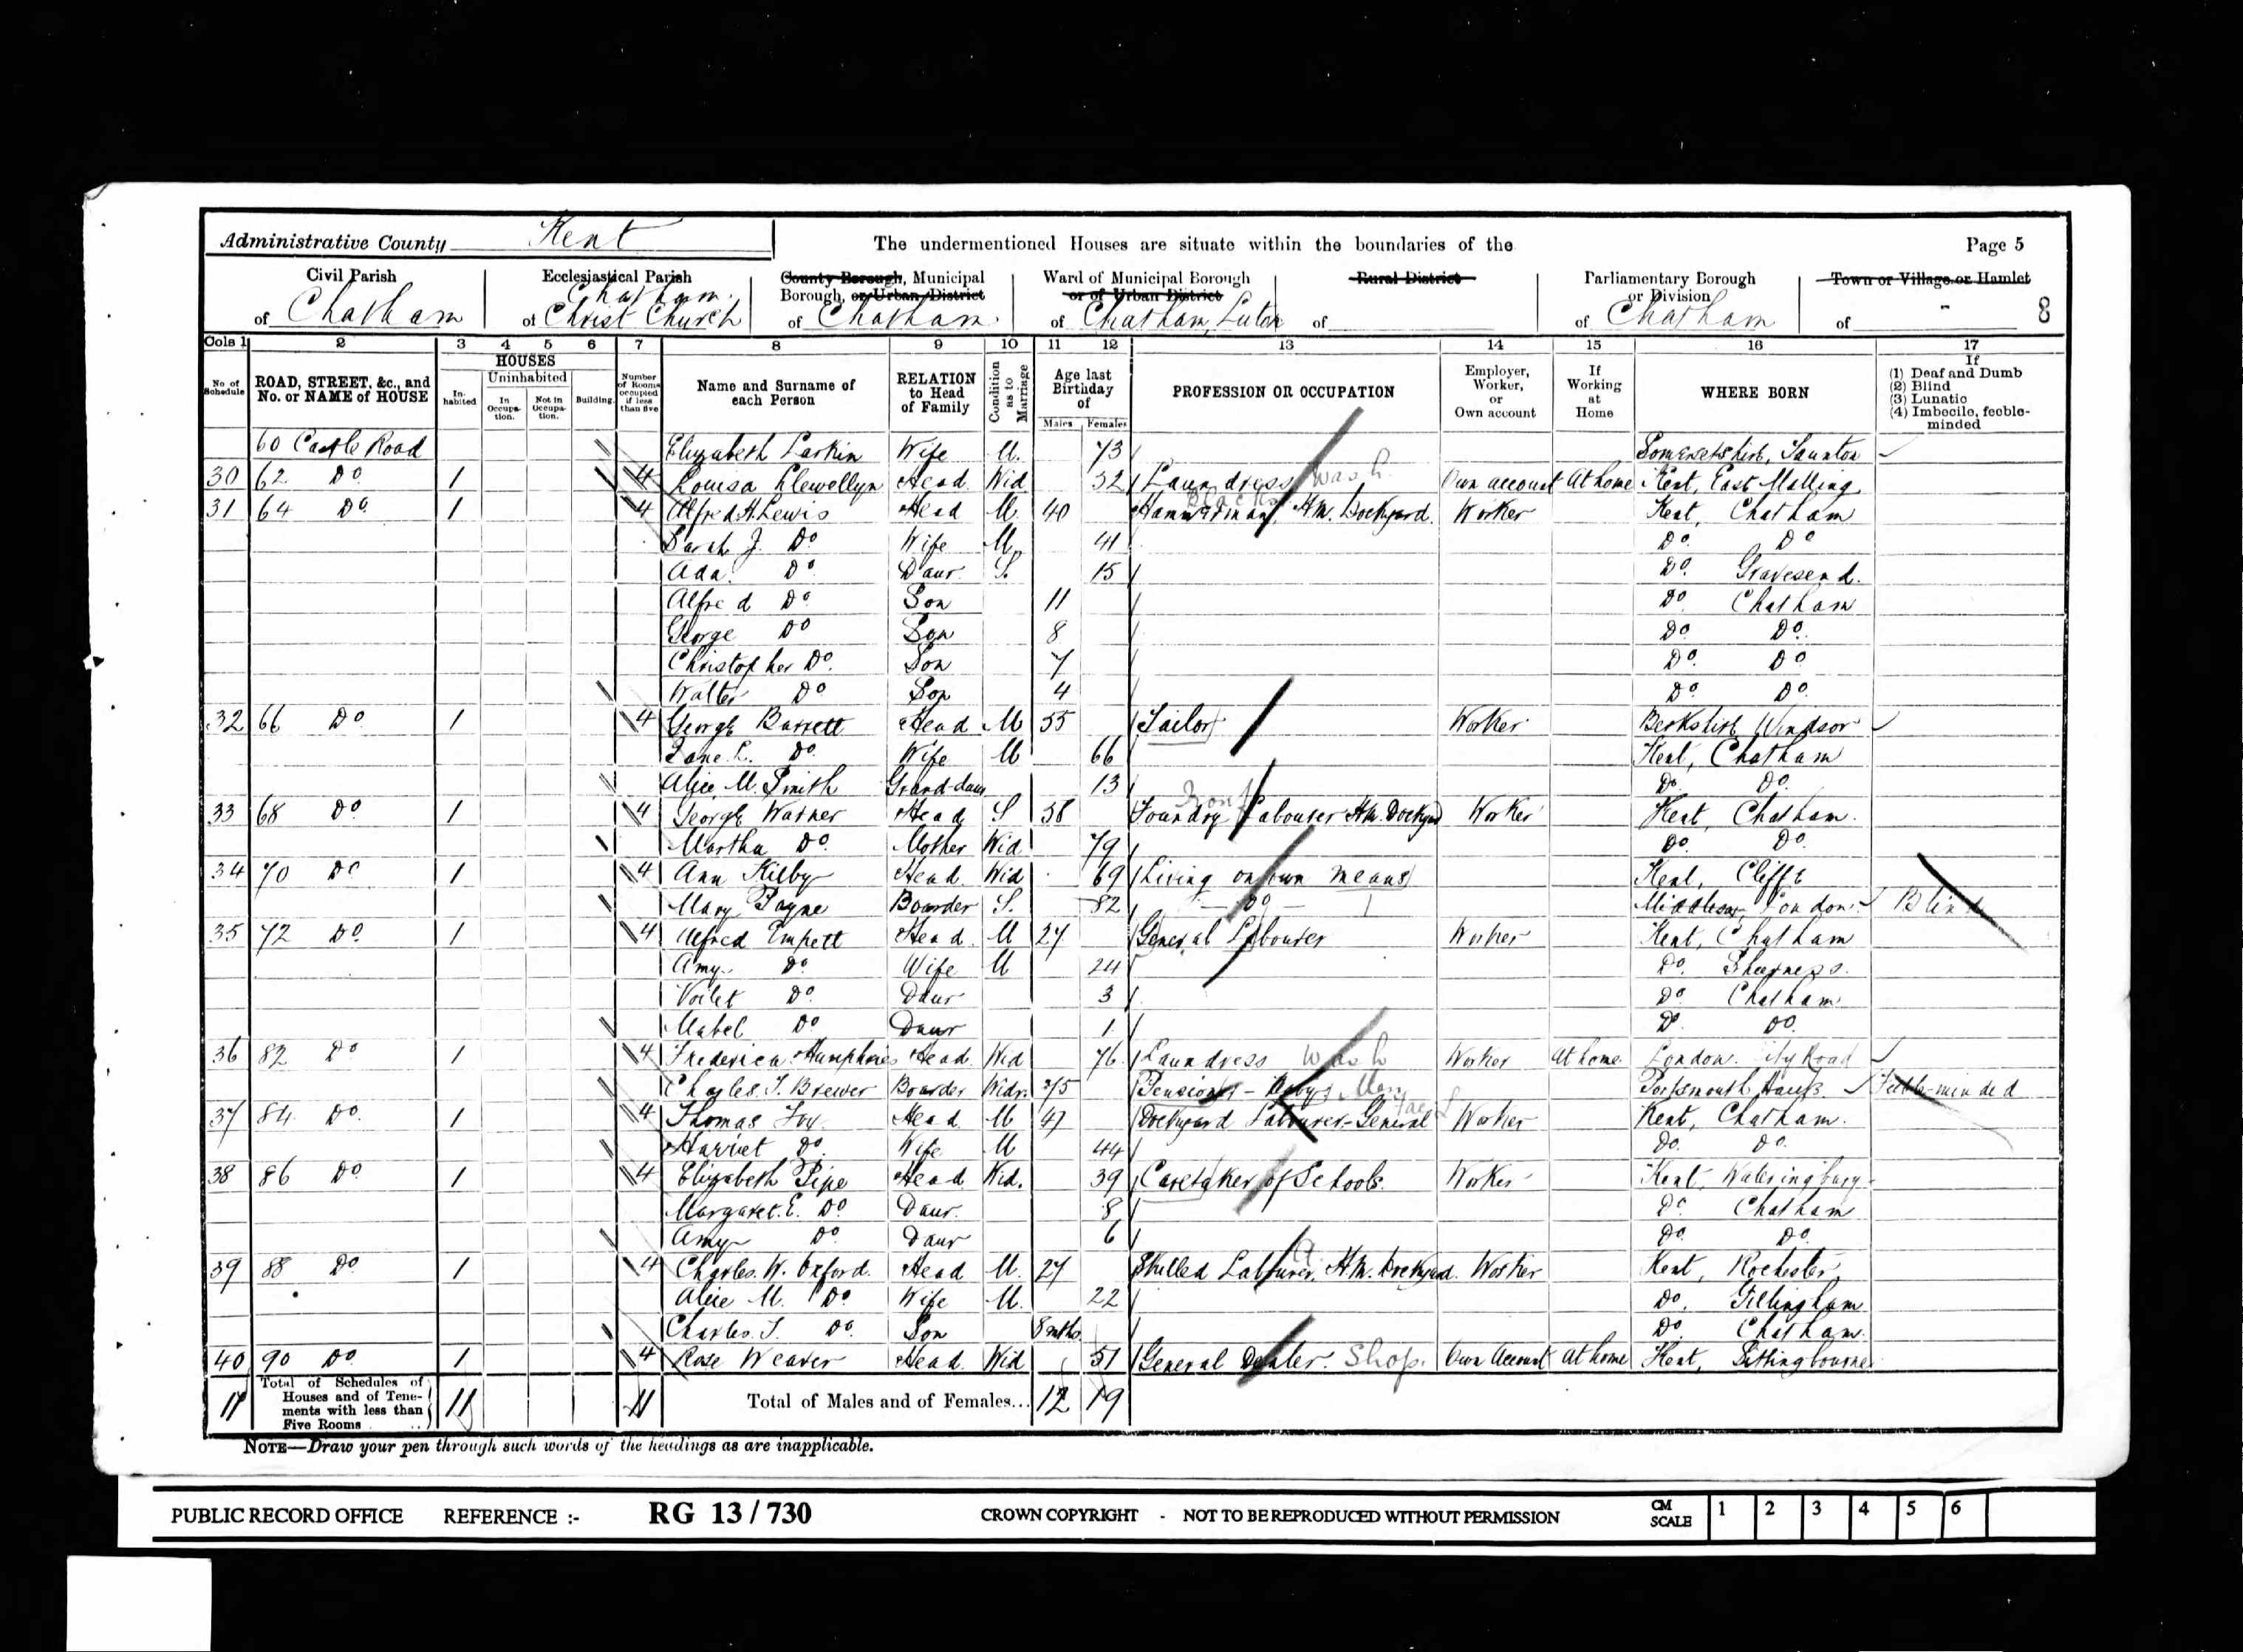 Administrative County Kent The undermentioned Houses are situate within the boundaries of the Page 5
Civil Parish Ecclesiastical Parish County Borough, Municipal Borough, or Urban District Ward of Municipal Borough or of Urban District Rural District Parliamentary Borough or Division Town or Village or Hamlet
of Chatham of Chatham Christ Church of Chatham of Chatham, Luton of of Chatham of - 8
Cols 1 2 3 4 5 6 7 8 9 10 11 12 13 14 15 16 17
No of Schedule ROAD, STREET, &c., and No. or NAME of HOUSE HOUSES Inhabited Uninhabited In Occupation. Not in Occupation. Building. Number of Rooms occupied if less than five Name and Surname of each Person RELATION to Head of Family Condition as to Marriage Age last Birthday of Males Females PROFESSION OR OCCUPATION Employer, Worker, or Own account If Working at Home WHERE BORN If (1) Deaf and Dumb (2) Blind (3) Lunatic (4) Imbecile, feeble-minded
60 Castle Road Elizabeth Larkin Wife M. 73 Somersetshire, Taunton
30 62 Do 1 4 Louisa Llewellyn Head Wid 32 Laundress Wash Own account At home Kent, East Malling
31 64 Do 1 4 Alfred H. Lewis Head M. 40 Hammerman, H.M. Dockyard. Worker Kent, Chatham
Sarah J. Do Wife M. 41 Do Do
Ada. Do Daur S. 15 Do Gravesend.
Alfred Do Son 11 Do Chatham
George Do Son 8 Do Do
Christopher Do. Son 7 Do Do
Walter Do Son 4 Do Do
32 66 Do 1 4 George Barrett Head M 55 Tailor Worker Berkshire Windsor
Jane L. Do Wife M 66 Kent, Chatham
Alice M. Smith Grand-daur 13 Do Do
33 68 Do 1 4 George Warner Head S 38 Foundry Labourer H.M. Dockyd Iron Worker Kent, Chatham.
Martha Do Mother Wid 79 Do Do
34 70 Do 1 4 Ann Kilby Head Wid 69 Living on own means Kent, Cliffe
Mary Payne Boarder S. 82 - Do - Middlesex, London. Blind
35 72 Do 1 4 Alfred Empett Head M 27 General Labourer Worker Kent, Chatham
Amy Do Wife M 24 Do Sheerness.
Voilet Do Daur 3 Do Chatham
Mabel Do Daur 1 Do Do
36 82 Do 1 4 Frederica Humphries Head Wid 76 Laundress Wash Worker At home London. City Road
Charles. T. Brewer Boarder Widr. 75 Pensioner - Navy Portsmouth Hants. Feeble-minded
37 84 Do 1 4 Thomas Fox Head M 47 Dockyard Labourer-General Worker Kent, Chatham.
Harriet Do Wife M 44 Do Do
38 86 Do 1 4 Elizabeth Pipe Head Wid. 39 Caretaker of Schools. Worker Kent, Wateringbury
Margaret. E. Do Daur. 8 Do Chatham
Amy Do Daur 6 Do Do
39 88 Do 1 4 Charles. W. Oxford. Head M. 27 Skilled Labourer, H.M. Dockyard. Worker Kent, Rochester
Alice M. Do Wife M. 22 Do. Gillingham
Charles. T. Do Son 8 mths. Do Chatham.
40 90 Do 1 4 Rose Weaver Head Wid 51 General Dealer. Shop. Own Account At home Kent, Sittingbourne
11 Total of Schedules of Houses and of Tenements with less than Five Rooms 11 11 Total of Males and of Females... 12 19
NOTE—Draw your pen through such words of the headings as are inapplicable.
PUBLIC RECORD OFFICE REFERENCE :- RG 13 / 730 CROWN COPYRIGHT - NOT TO BE REPRODUCED WITHOUT PERMISSION CM SCALE 1 2 3 4 5 6